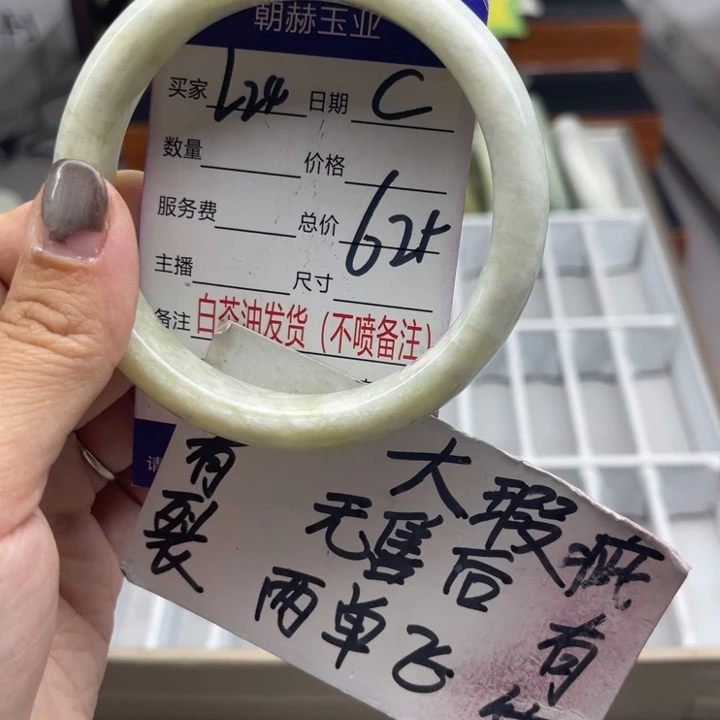 朝赫玉业
买家 日期 C
数量 价格
服务费 总价 62#
主播 尺寸
备注 白茶油发货（不喷备注）
请
有裂
大瑕疵有
无售后
两单飞